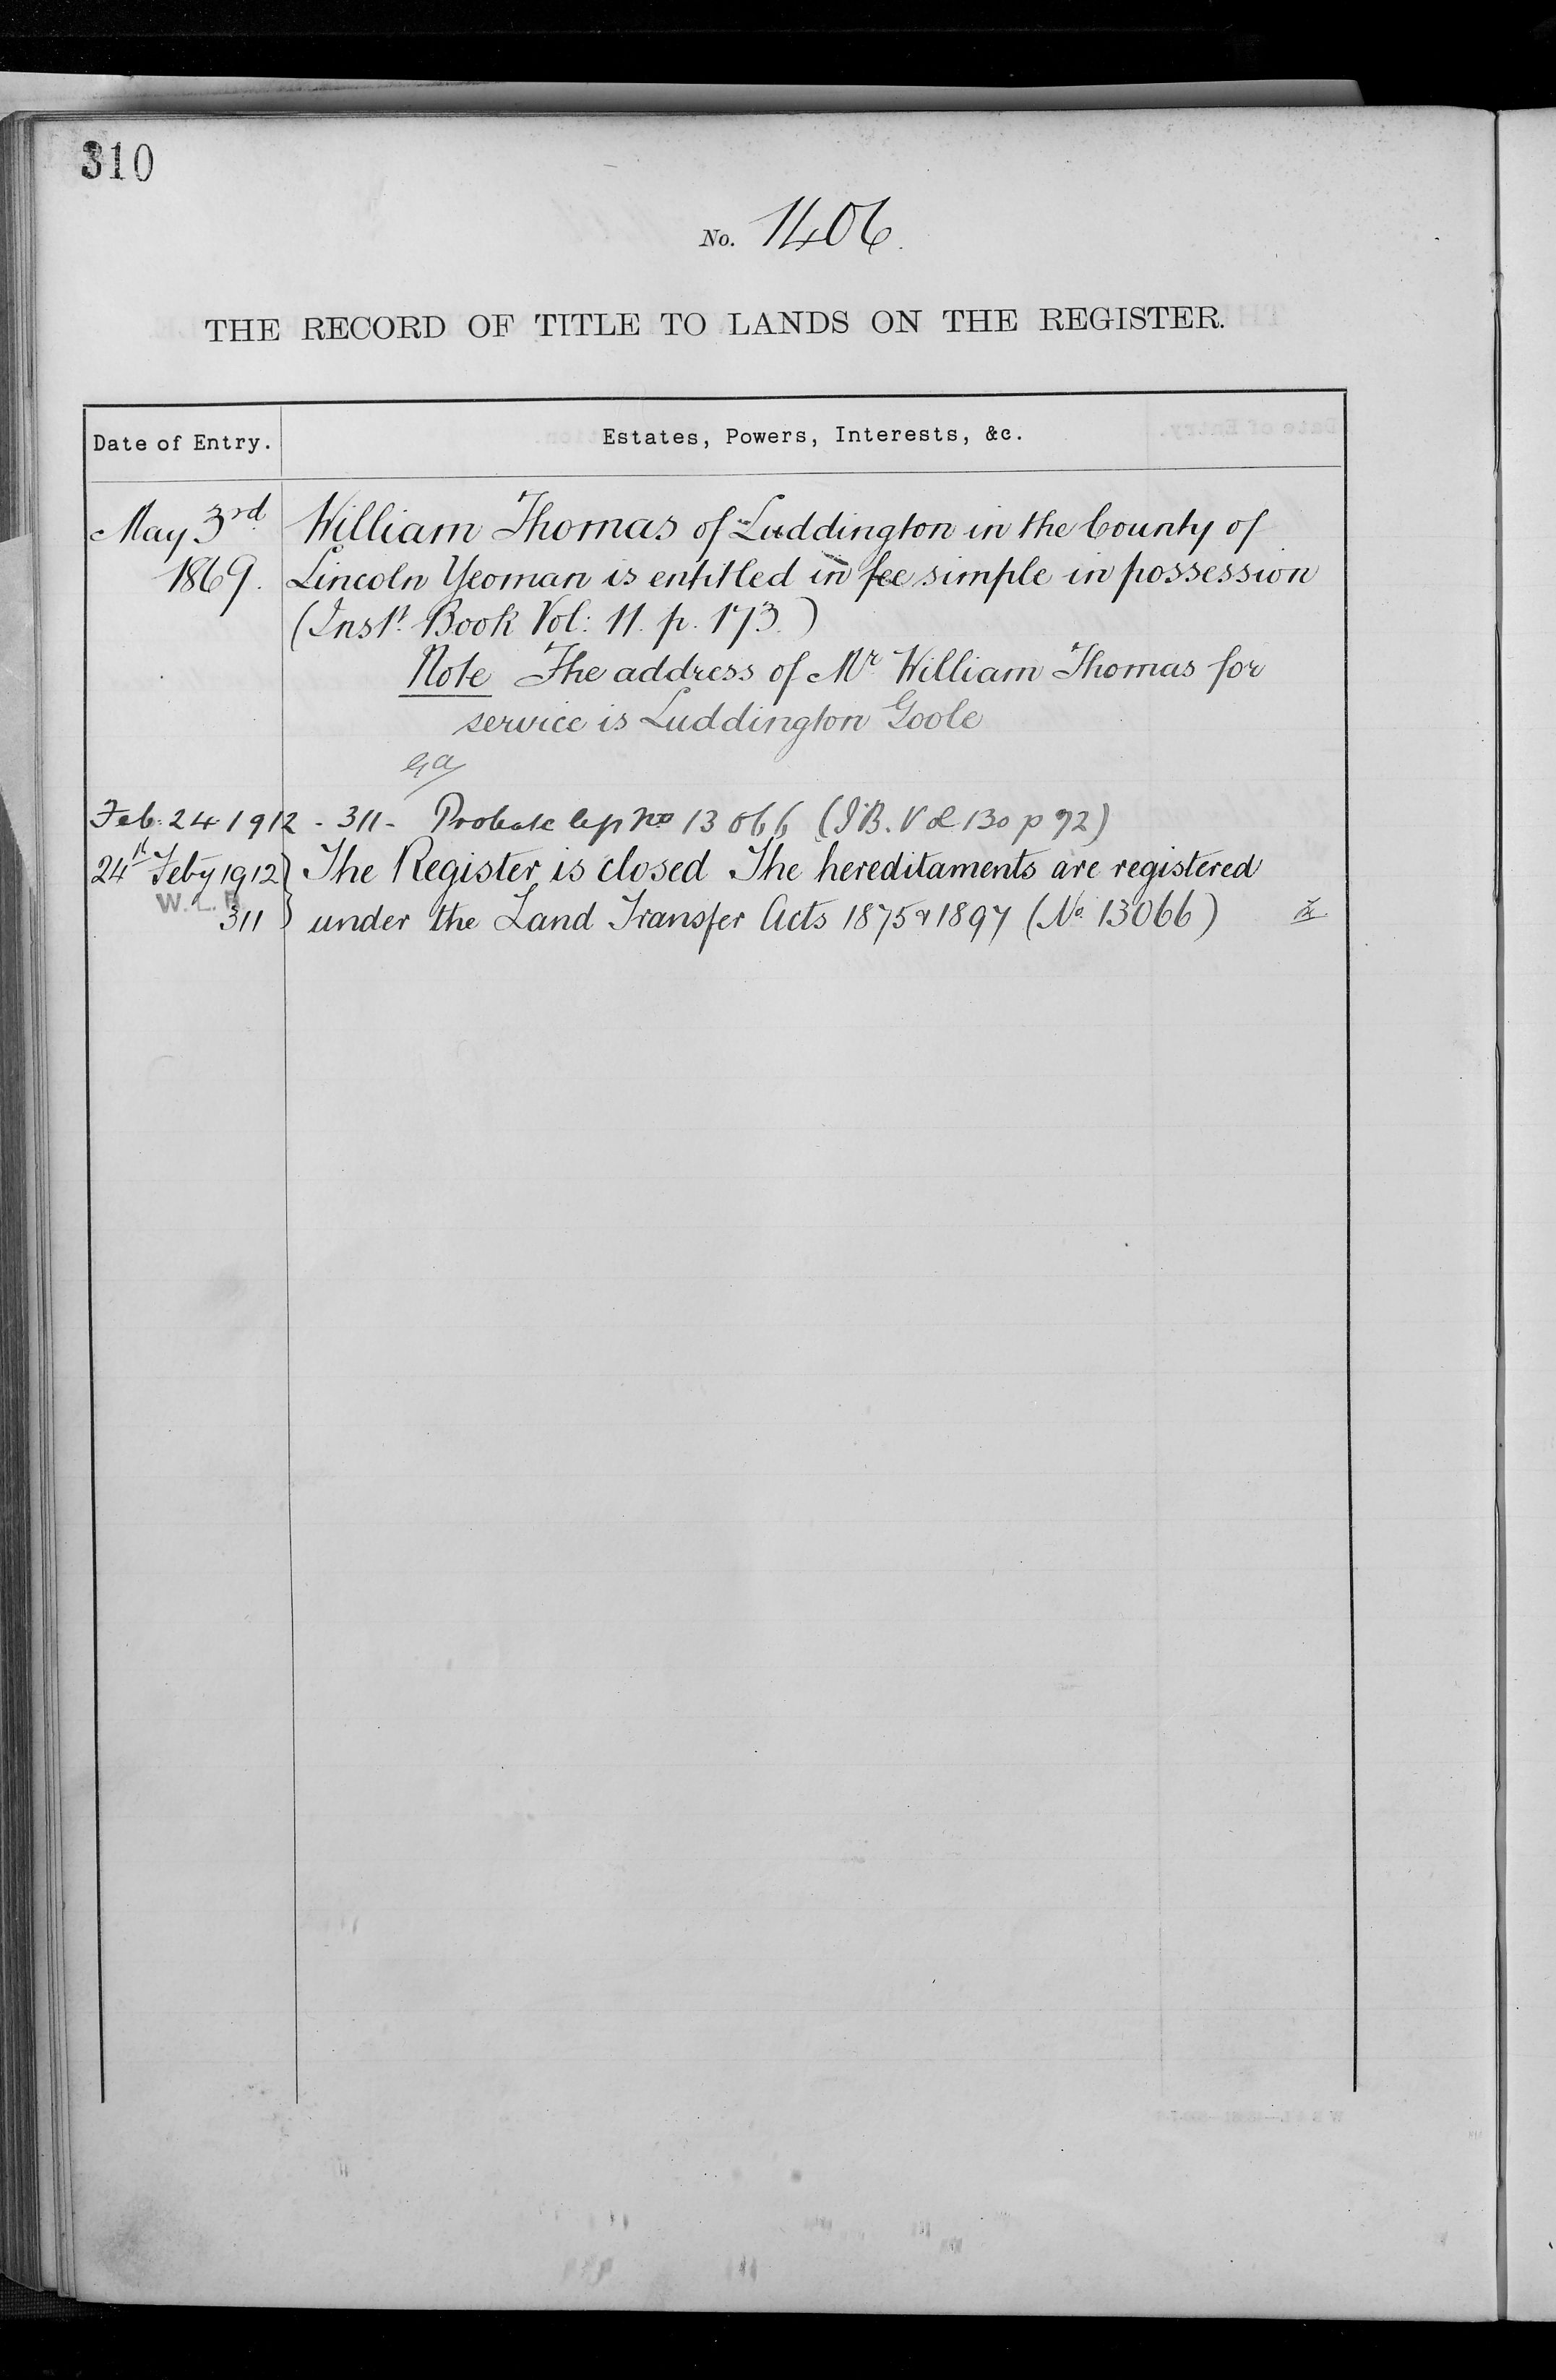 310
No. 1406.
THE RECORD OF TITLE TO LANDS ON THE REGISTER.
Date of Entry. Estates, Powers, Interests, &c.
May 3rd William Thomas of Luddington in the County of
1869. Lincoln Yeoman is entitled in fee simple in possession
(Inst. Book Vol: 11. p. 173.)
Note The address of Mr William Thomas for
service is Luddington Goole
Feb. 24 1912 - 311 - Probate No 13066 (I.B. Vol 130 p 92)
24th Feby 1912 } The Register is closed The hereditaments are registered
W.L.
311 } under the Land Transfer Acts 1875 & 1897 (No. 13066)